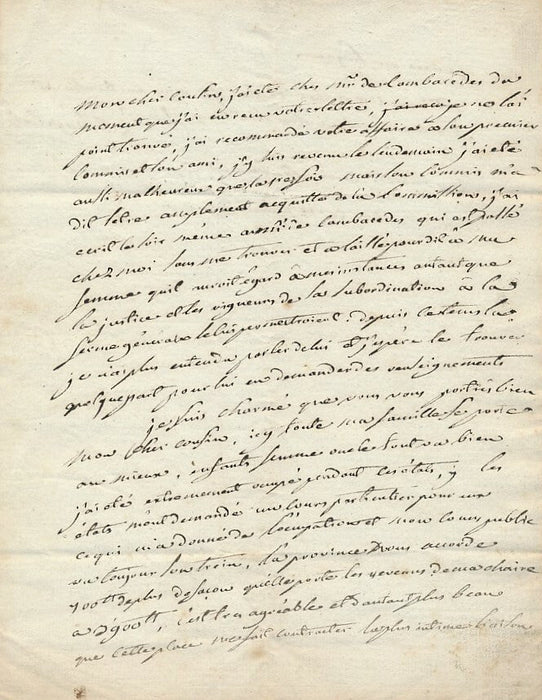 mon cher cousin, j'ai été chez mr. de Cambacedes du
moment que j'ai eu reçu votre lettre je ne l'ai
point trouvé, j'ai recommandé votre affaire a son premier
commis et son ami, j'y suis revenu le lendemain j'ai été
aussi malheureux que la 1re fois mais son commis m'a
dit s'être amplement acquitté de la commission, j'ai
ecrit le soir même a mr. de Cambacedes qui est passé
chez moi sans me trouver et a laissé pour dit à ma
femme qu'il auroit egard à mes instances autant que
la justice et les rigueurs de la subordination a la
ferme générale le lui permettroient: depuis ce tems la
je n'ai plus entendu parler de lui et j'espére le trouver
quelque part pour lui en demander des renseignements
je suis charmé que vous vous portiés bien
mon cher cousin, icy toute ma famille se porte
au mieux, enfants femme oncle tout va bien
j'ai été extremement occupé pendant ces états, les
états m'ont demandé un cours particulier pour eux
ce qui m'a donné de l'occupation et mon cours public
va toujour son train, la province nous accorde
900tt de plus de facon qu'elle porte les revenus de ma chaire
a 2900tt, c'est tres agréable et d'autant plus beau
que cette place me fait contracter la plus intime liaison